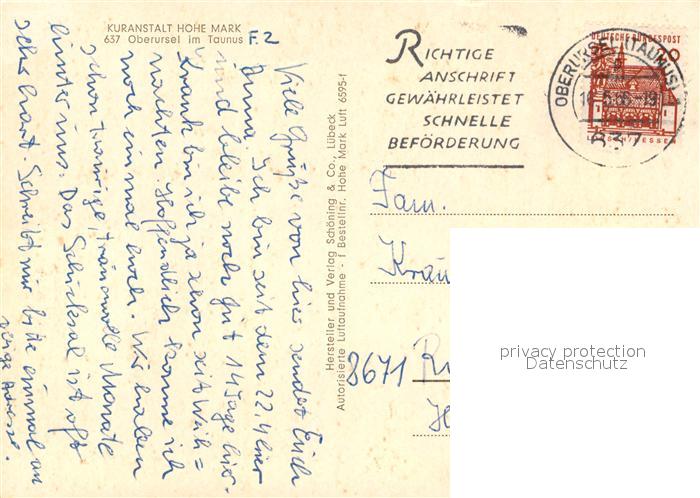 KURANSTALT HOHE MARK
637 Oberursel im Taunus
F. 2
Viele Grüße von hier sendet Euch
Anna. Ich bin seit dem 22.4 hier
und bleibe noch gut 14 Tage hier.
Krank bin ich ja schon seit Weih=
nachten. Hoffendlich komme ich
noch einmal hoch. Wir haben
schon traurige, Monate
hinter uns. Das Schicksal ist oft
sehr hart. Schreibt mir bitte einmal an
Adresse.
Hersteller und Verlag Schöning & Co., Lübeck
Autorisierte Luftaufnahme - f Bestellnr. Hohe Mark Luft 6595-f
RICHTIGE
ANSCHRIFT
GEWÄHRLEISTET
SCHNELLE
BEFÖRDERUNG
DEUTSCHE BUNDESPOST
20
OBERURSEL (TAUNUS) 1
637
HESSEN
Fam.
Kräu
8671
privacy protection
Datenschutz